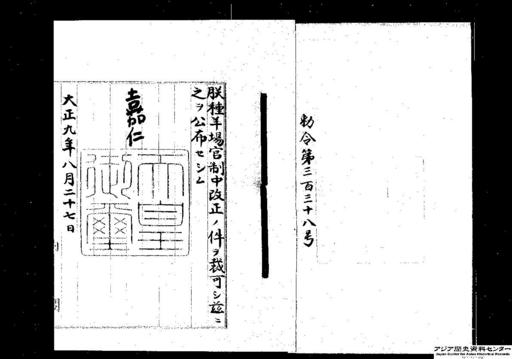 勅令第三百三十八号
朕種羊場官制中改正ノ件ヲ裁可シ茲ニ
之ヲ公布セシム
嘉仁
天皇
御璽
大正九年八月二十七日
アジア歴史資料センター
Japan Center for Asian Historical Records